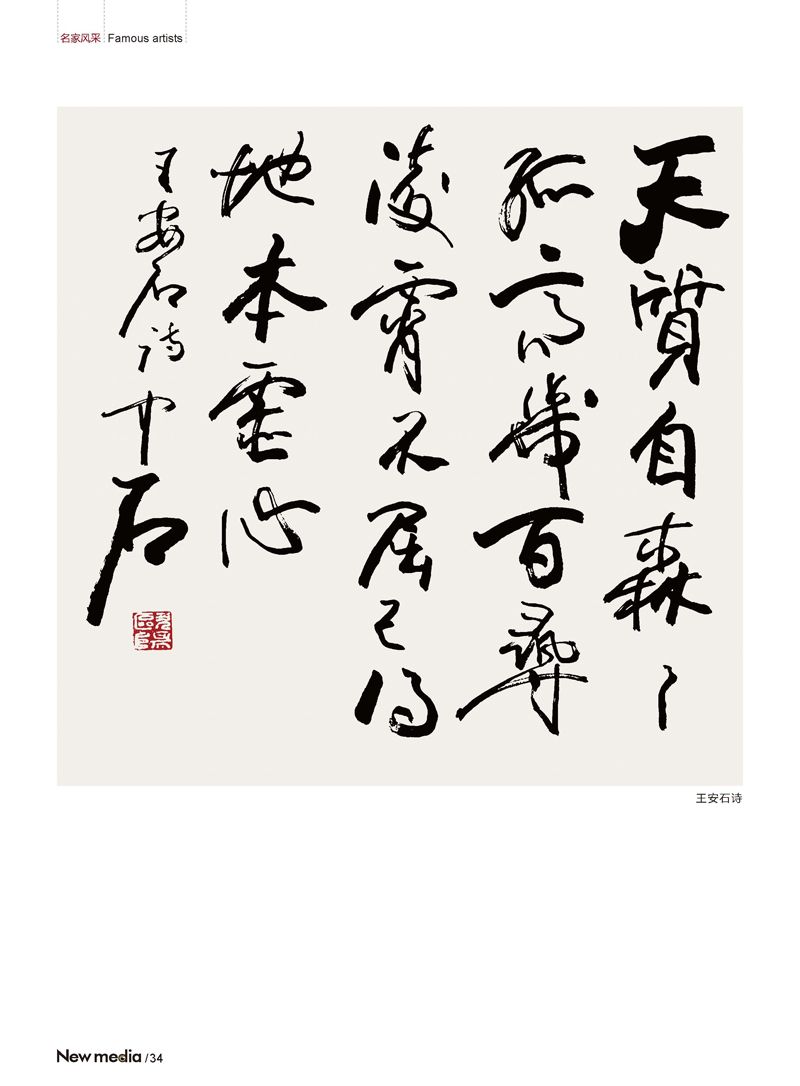 名家风采 Famous artists
天質自森〻
孤高幾百尋
凌霄不屈己得
地本虛心
王安石诗中石
王安石诗
New media /34